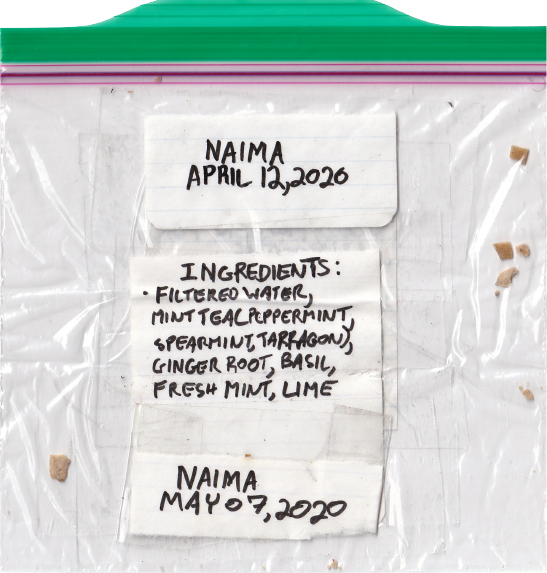 NAIMA
APRIL 12,2020
INGREDIENTS:
• FILTERED WATER,
MINT TEA(PEPPERMINT,
SPEARMINT, TARRAGON),
GINGER ROOT, BASIL,
FRESH MINT, LIME
NAIMA
MAY 07, 2020